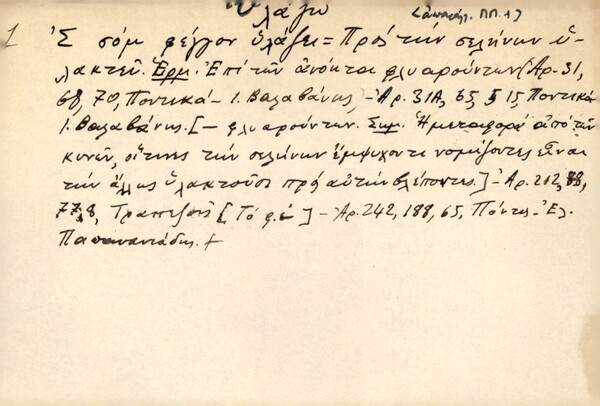 ὑλάζω
1 Ἐς σόμ φέγγον ὑλάζει = Πρὸς τὴν σελήνην ὑ-
λακτεῖ. Ἑρμ. Ἐπὶ τῶν ἀνόητα φλυαρούντων (Ἀρ. 31,
68, 70, Ποντικά - Ι. Βαλαβάνης) - Ἀρ. 31Α, 65, § 15, Ποντικά
Ι. Βαλαβάνης. [- φλυαρούντων. Σημ. Ἡ μεταφορά ἀπὸ τῶν
κυνῶν, οἵτινες τὴν σελήνην ἔμψυχόν τι νομίζοντες εἶναι
τὴν ὑλακτοῦσι πρὸς αὐτὴν βλέποντες.] - Ἀρ. 212, 88,
77, 8, Τραπεζοῦς [Τό φ.] - Ἀρ. 242, 188, 65, Πόντος - Ἐλ.
Παπανανιάδης. +